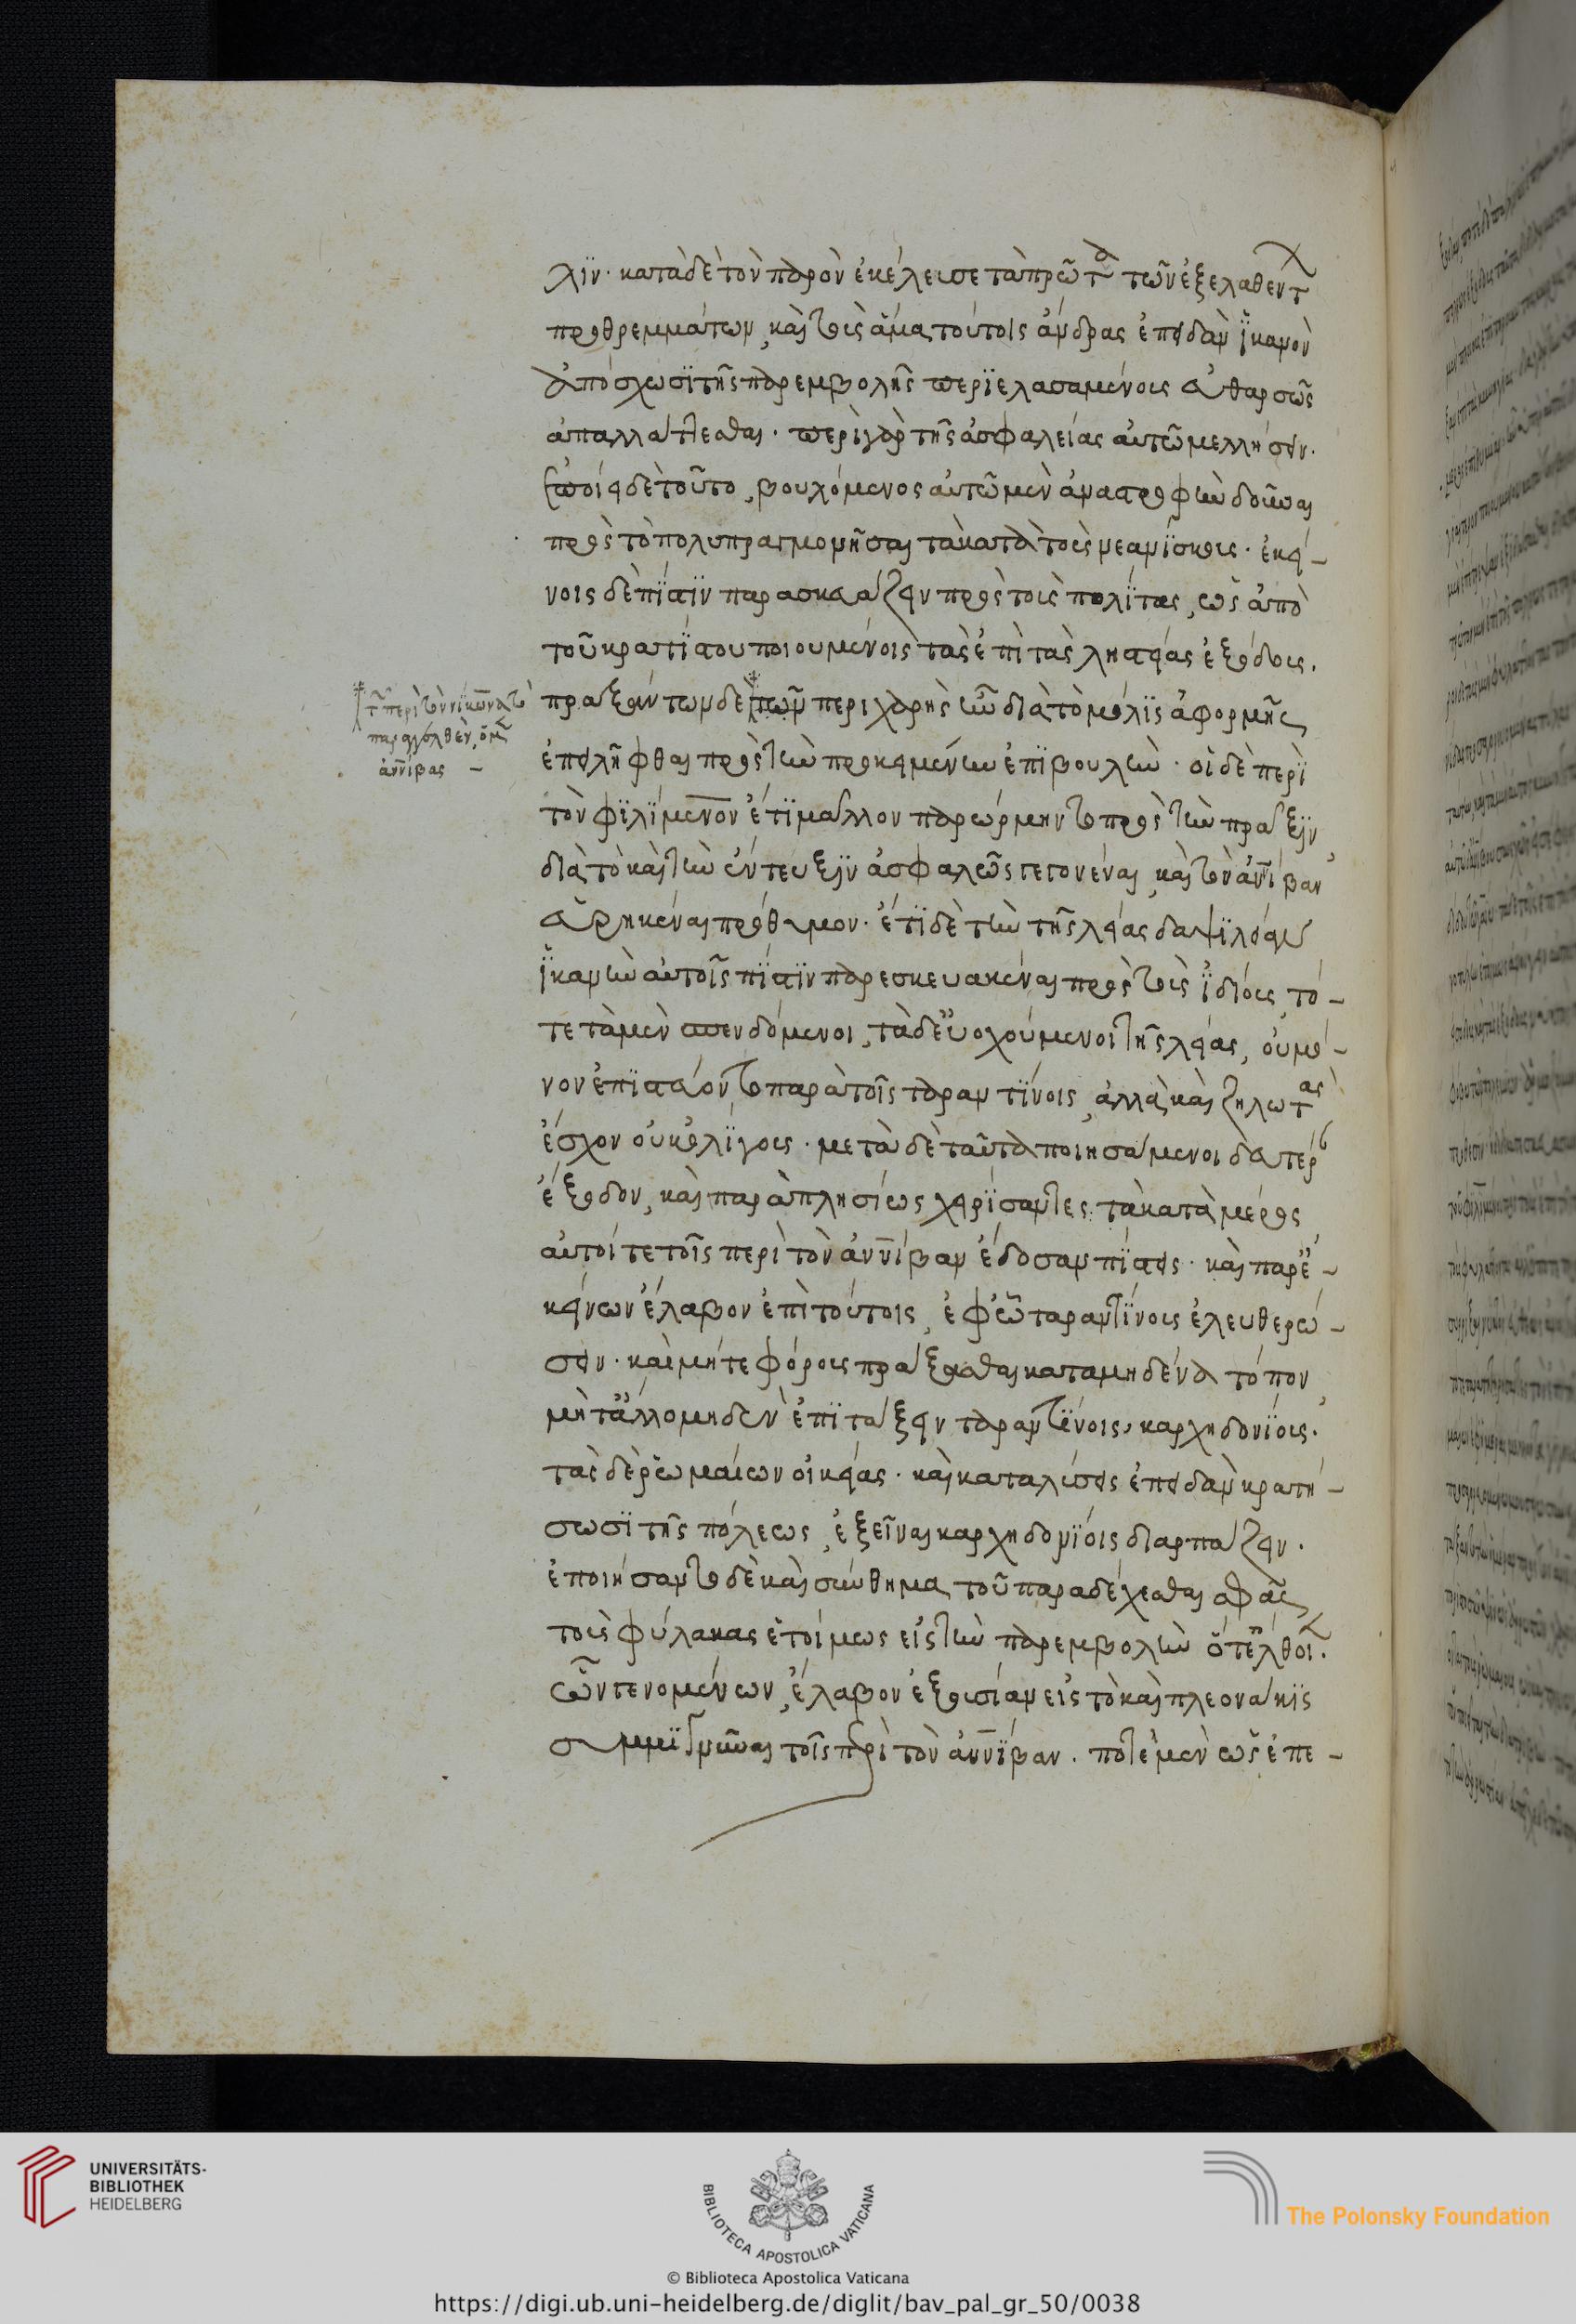 λϊν· κατὰ δὲ τὸν παρὸν ἐκέλευσε τὰ πρῶτα τῶν ἐξελαθέντων
προθρεμμάτων, καὶ τοὺς ἅμα τούτοις ἄνδρας ἐπειδὰν ἱκανὸν
ἀπόσχωσϊ τῆς παρεμβολῆς περϊελασαμένους εὐθαρσῶς
ἀπαλλάττεσθαι· περὶ γὰρ τῆς ἀσφαλείας αὐτῶ μελλήσειν·
ἐποίει δὲ τοῦτο, βουλόμενος αὐτῶ μὲν ἀναστροφὴν δοῦναι
πρὸς τὸ πολυπραγμονῆσαι τὰ κατὰ τοὺς νεανΐσκους· ἐκεί-
νοις δὲ πΐστϊν παρασκευάζειν πρὸς τοὺς πολΐτας, ὡς ἀπὸ
τοῦ κρατΐστου ποιουμένοις τὰς ἐπὶ τὰς ληστείας ἐξόδους.
πραξάντων δὲ τῶν περιχαρὴς ὢν διὰ τὸ μόλϊς ἀφορμῆς
ἐπειλῆφθαι πρὸς τὴν προκειμένην ἐπϊβουλὴν· οἱ δὲ περὶ
τὸν φϊλΐμενον ἔτϊ μᾶλλον παρώρμηντο πρὸς τὴν πρᾶξϊν
διὰ τὸ καὶ τὴν ἔντευξϊν ἀσφαλῶς γεγονέναι, καὶ τὸν ἀννΐβαν
εὑρηκέναι πρόθυμον· ἔτϊ δὲ τὴν τῆς λείας δαψΐλειαν
ἱκανὴν αὐτοῖς πΐστϊν παρεσκευακέναι πρὸς τοὺς ἰδίους, τό-
τε τὰ μὲν σπενδόμενοι, τὰ δ' εὐοχούμενοι τῆς λείας, οὐ μό-
νον ἐπϊστεύοντο παρὰ τοῖς ταραντΐνοις, ἀλλὰ καὶ ζηλωτὰς
ἔσχον οὐκ ὀλΐγους· μετὰ δὲ ταῦτα ποιησάμενοι δευτέραν
ἔξοδον, καὶ παραπλησίως χειρΐσαντες τὰ κατὰ μέρος
αὐτοί τε τοῖς περὶ τὸν ἀννΐβαν ἔδοσαν πΐστεις· καὶ παρ' ἐ-
κείνων ἔλαβον ἐπὶ τούτοις, ἐφ' ὧ ταραντΐνους ἐλευθερώ-
σειν· καὶ μήτε φόρους πράξασθαι κατὰ μηδένα τόπον
μήτ' ἄλλο μηδὲν ἐπϊτάξειν ταραντΐνοις, καρχηδονΐους·
τὰς δὲ ῥωμαίων οἰκείας· καὶ καταλύσεις ἐπειδὰν κρατή-
σωσϊ τῆς πόλεως, ἐξεῖναι καρχηδονΐοις διαρπάζειν·
ἐποιήσαντο δὲ καὶ σύνθημα τοῦ παραδέχεσθαι σφᾶς
τοὺς φύλακας ἑτοίμως εἰς τὴν παρεμβολὴν ὅτ' ἔλθοιεν·
ὧν γενομένων, ἔλαβον ἐξουσίαν εἰς τὸ καὶ πλεονάκϊς
συμμϊγνύναι τοῖς περὶ τὸν ἀννΐβαν. ποτὲ μὲν ὡς ἐπε-
ἀννίβας -
UNIVERSITÄTS-
BIBLIOTHEK
HEIDELBERG
BIBLIOTECA APOSTOLICA VATICANA
The Polonsky Foundation
© Biblioteca Apostolica Vaticana
https://digi.ub.uni-heidelberg.de/diglit/bav_pal_gr_50/0038